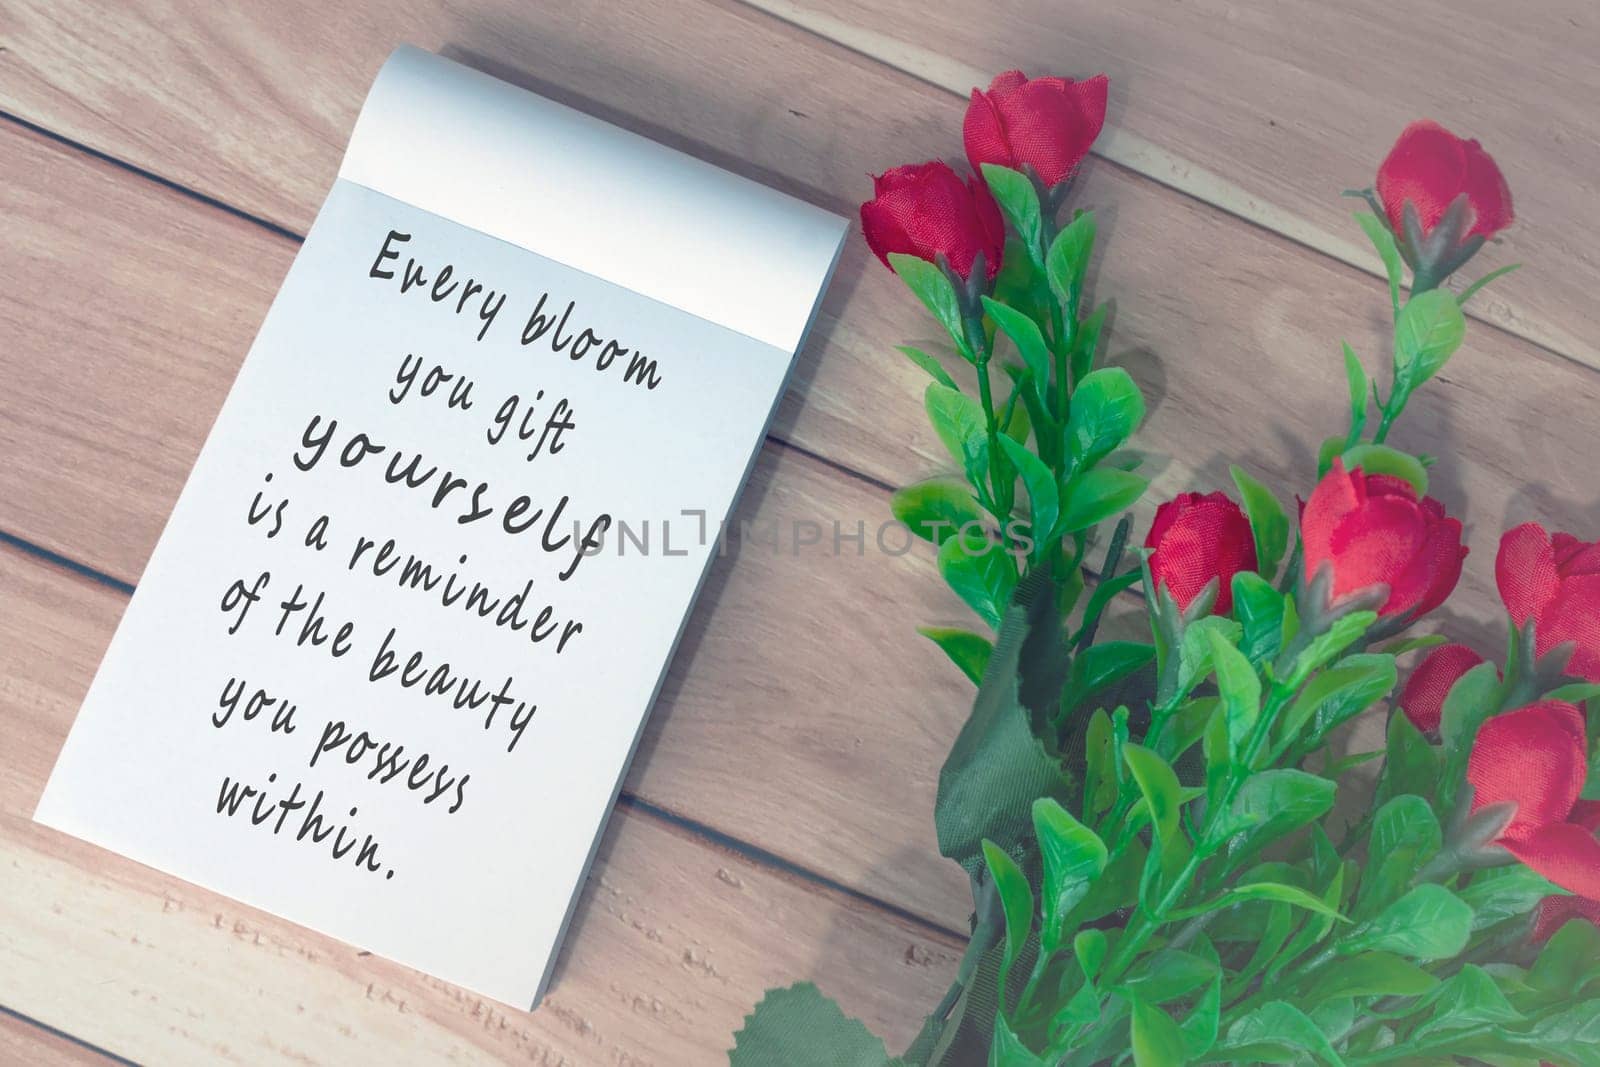 Every bloom
you gift
yourself
is a reminder
of the beauty
you possess
within.
UNLIMPHOTOS